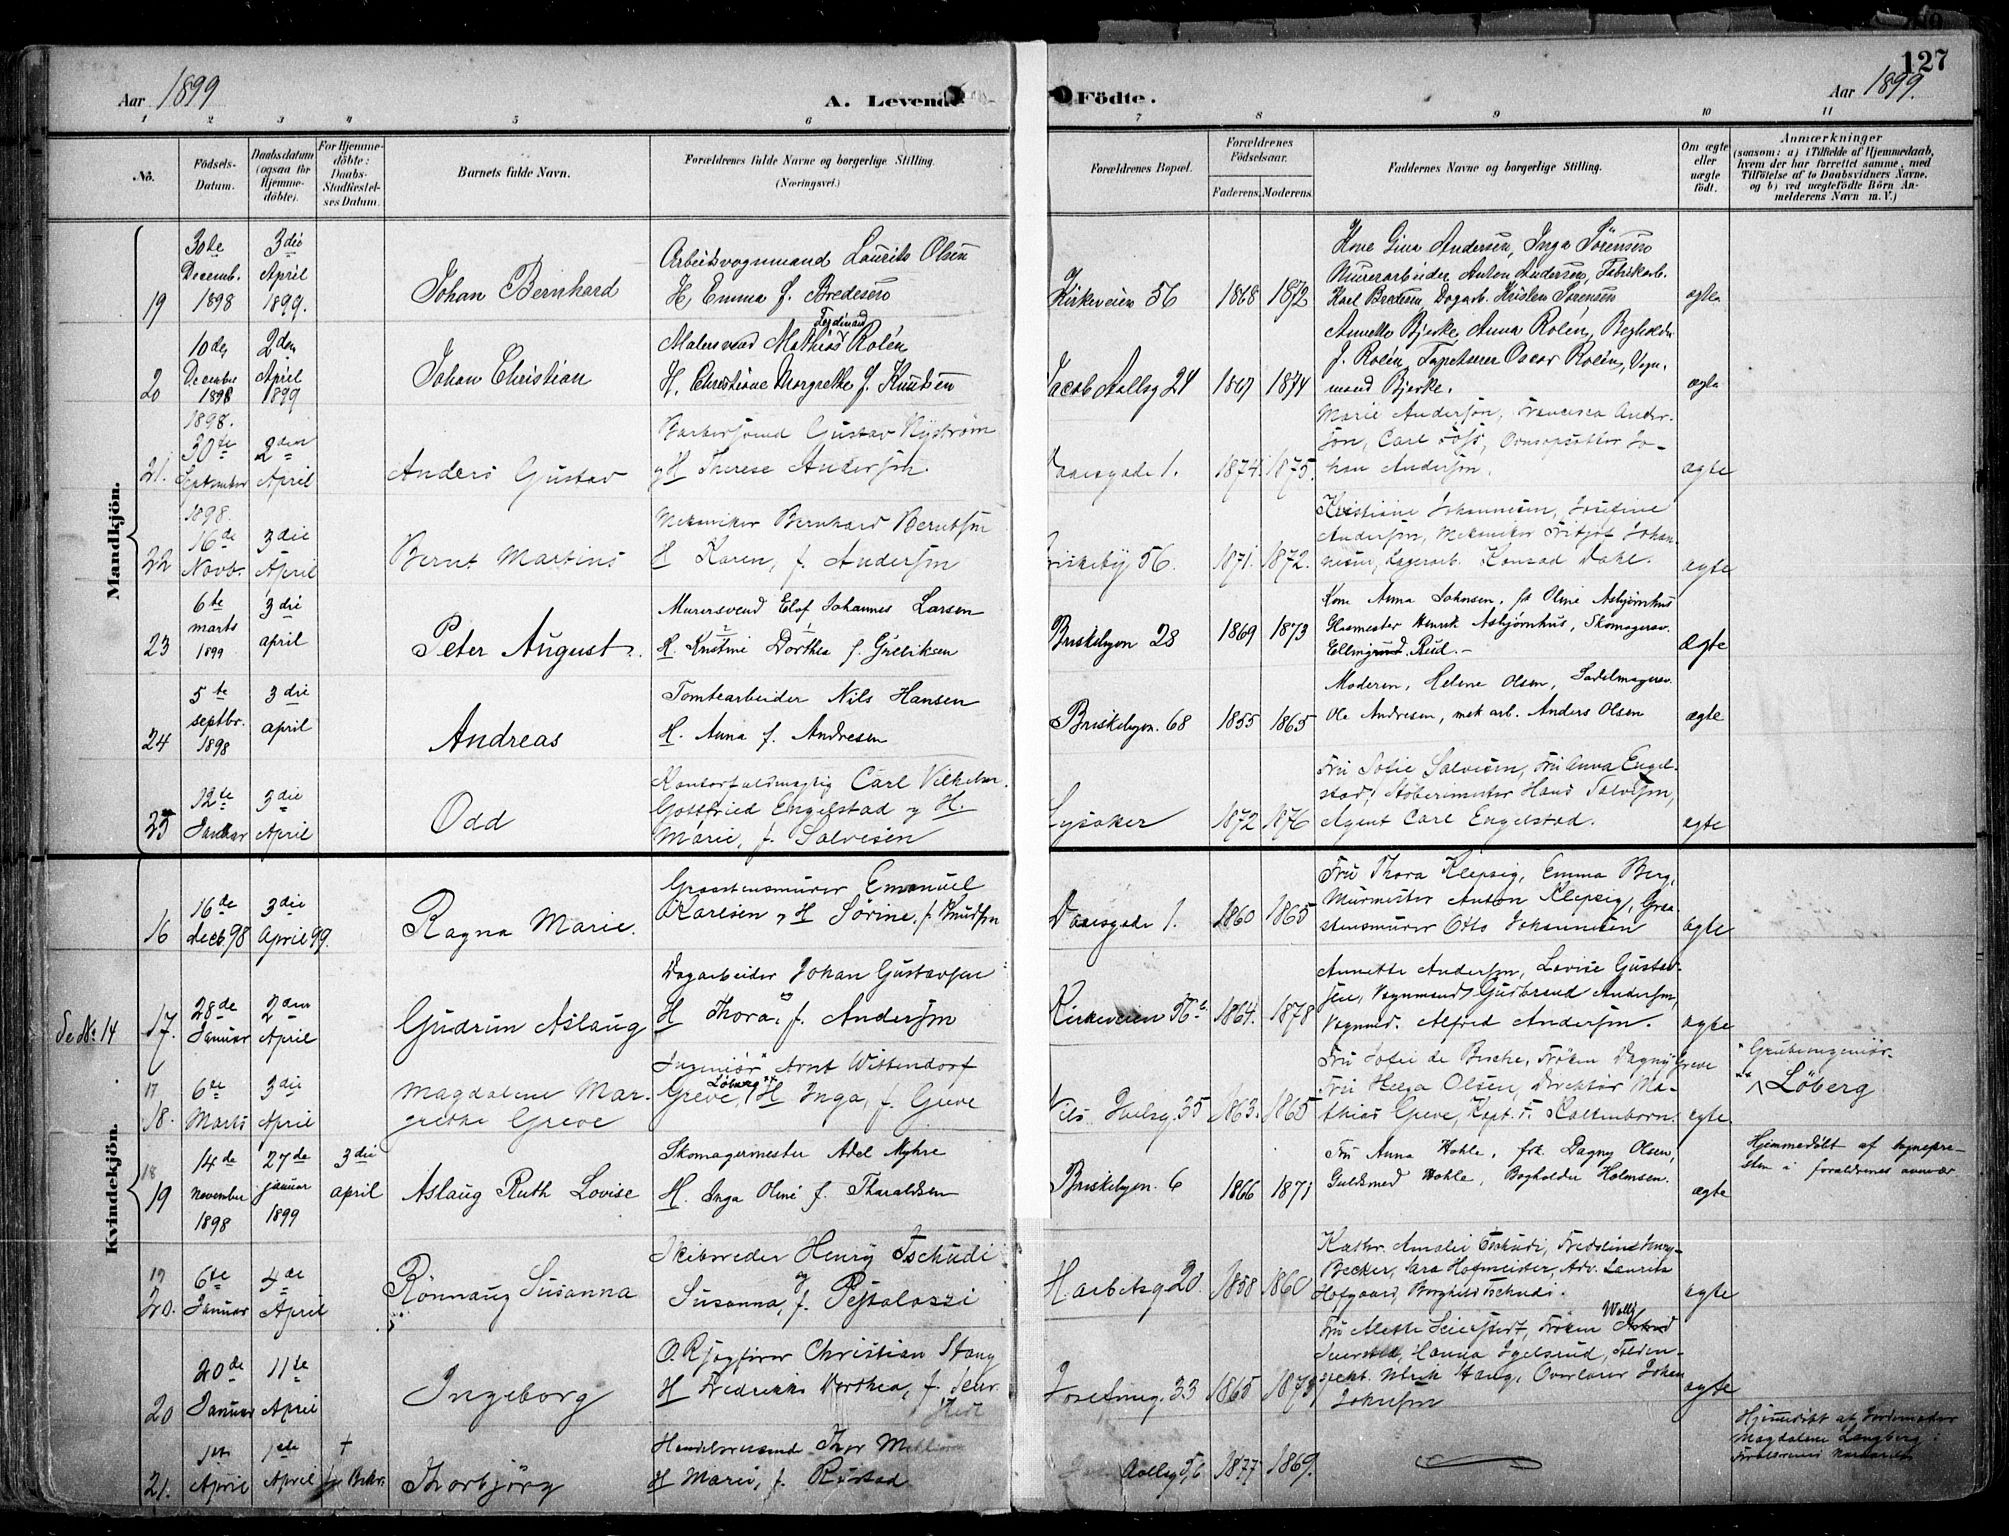 127
Aar 1899
A. Levende
Födte.
Aar 1899.
1 2 3 4 5 6 7 8 9 10 11
No.
Födsels-Datum.
Daabsdatum (ogsaa for Hjemme-döbte).
For Hjemme-döbte: Daabs-Stadfæstel-ses Datum.
Barnets fulde Navn.
Forældrenes fulde Navne og borgerlige Stilling.
(Næringsvei.)
Forældrenes Bopæl.
Forældrenes Födselsaar.
Faderens. Moderens.
Faddernes Navne og borgerlige Stilling.
Om ægte eller uægte födt.
Anmærkninger
(saasom: a) i Tilfælde af Hjemmedaab,
hvem der har forrettet samme, med
Tilföielse af to Daabsvidners Navne.
og b) ved uægtefödte Börn An-
melderens Navn m. V.)
Mandkjön.
19
30te Decemb. 1898
3die April 1899.
Johan Bernhard
Arbeidsvognmand Laurits Olsen
H. Emma f. Bredesen
Kirkeveien 56
1868 1872
Kone Gina Andersen, Inga Sörensen
Murerarbeider Anton Andersen, Fabrikarb.
Karl Bredesen, Dagarb. Kristen Sörensen
ægte
20
10de December 1898
2den April 1899
Johan Christian
Ferdinand
Malersvend Mathias Rolén
H. Christiane Margrethe f. Knudsen
Jacob Aallsg 24
1867 1874
Annette Bjerke, Anna Rolén, Bogholder
J. Rolén, Tapetserer Oscar Rolén, Vogn-
mand Bjerke.
ægte
21.
1898. 30te September
2den April
Anders Gustav
Gustav Nyström
og H Therese Andersen.
Daasgade 1.
1874. 1875.
Marie Andersen, Francisca Ander-
sen, Carl Foss, Jo-
han Andersen.
ægte
22
1898. 16de Novb.
3die April
Bernt Martins
Mekaniker Bernhard Berntsen
H Karen, f. Andersen
Briskeby 56.
1871. 1872.
Kristiane Johannesen, Josefine
Andersen, Mekaniker Fritjof Johan-
nesen, Lagerarb. Konrad Dahl.
ægte
23
6te marts 1899
3die april
Peter August.
Murersvend Elof Johannes Larsen
H. Kristine Dorthea f. Gulliksen
Briskebyen 28
1869 1873
Kone Anna Johnsen, Oline Asbjørnhus
Glasmester Henrik Asbjørnhus, Skomagersv.
Ellingrud. Rud.-
Ægte
24
5te septbr. 1898
3die april
Andreas
Tomtearbeider Nils Hansen
H. Anna f. Andresen
Briskebyen. 68
1855 1865
Moderen, Helene Olsen, Sadelmagersv.
Ole Andresen, mek arb. Anders Olsen
ægte
25
12te Januar
3die April
Odd
Kontorfuldmægtig Carl Vilhelm
Gottfried Engelstad og H.
Marie, f. Salvesen
Lysaker
1872 1876
Fru Sofie Salvesen, Fru Anna Engel-
stad, Støberimester Hans Salvesen,
Agent Carl Engelstad.
ægte
Kvindekjön.
16
16de decb 98
3die April 99.
Ragna Marie.
Graastensmurer Emanuel
Karlsen og H Sörine, f. Knudsen
Daasgade 1.
1860 1865
Fru Thora Klepzig, Emma Berg,
Murmester Anton Klepzig, Graa-
stensmurer Otto Johannesen
ægte
Se No 14
17.
28de Januar
2den April
Gudrun Aslaug
Dagarbeider Johan Gustavsen
og H Thora, f. Andersen
Kirkeveien 56
1864. 1878
Annette Andersen, Lovise Gustav-
sen, Vognmand Gudbrand Andersen,
Vognmd. Alfred Andersen.
ægte
17
18.
6te Marts
3die April
Magdalene Mar-
grethe Greve
Ingeniør Arnt Wittendorf
Løberg
Greve, H Inga, f. Greve
Nils Juelsg. 35
1863. 1865
Fru Sofie de Besche, Frøken Dagny Greve
Fru Helga Olsen, Direktør Ma-
thias Greve, Kapt. F. Kaltenborn.
ægte.
Grubeingeniør.
Löberg
18
19
14de November 1898
27de januar 1899
3die april
Aslaug Ruth Lovise
Skomagermester Adel Myhre
H. Inga Oline f. Tharaldsen
Briskebyen. 6
1866 1871
Fru Anna Wahle, frk. Dagny Olsen,
Guldsmed Wahle, Bogholder Holmsen.
ægte
Hjemmedøbt af sognepre-
sten i forældrenes nærvær
19
20.
6te Januar
4de April
Rönnaug Susanna
Skibsreder Henry Tschudi
og
Susanna, f. Pestalozzi
Harbitzg 20.
1858 1860
Kathr. Amalie Tschudi,
Becker, Sara Hofmeister, Adv. Laurits
Hofgaard, Borghild Tschudi.
ægte
20
20de Januar
11te April
Ingeborg
O. R Sagfører Christian Stang
H Fredrikke Dorthea, f. Seier-
stedt
Josefineg. 33
1865 1873
Wally
Fru Alette Seierstedt, Frøken Astrid
Seiersted, Hanna Egelsrud,
Stang, Overlærer Johan
Johnsen
ægte
21.
1ste April
1ste April
†
Thorbjörg
Handelsreisende Thor
H Marie, f. Rustad
Aallsg 56
1877 1869.
Hjemmedøbt af Jordemoder
Magdalene Langberg i
Forældrenes nærværelse